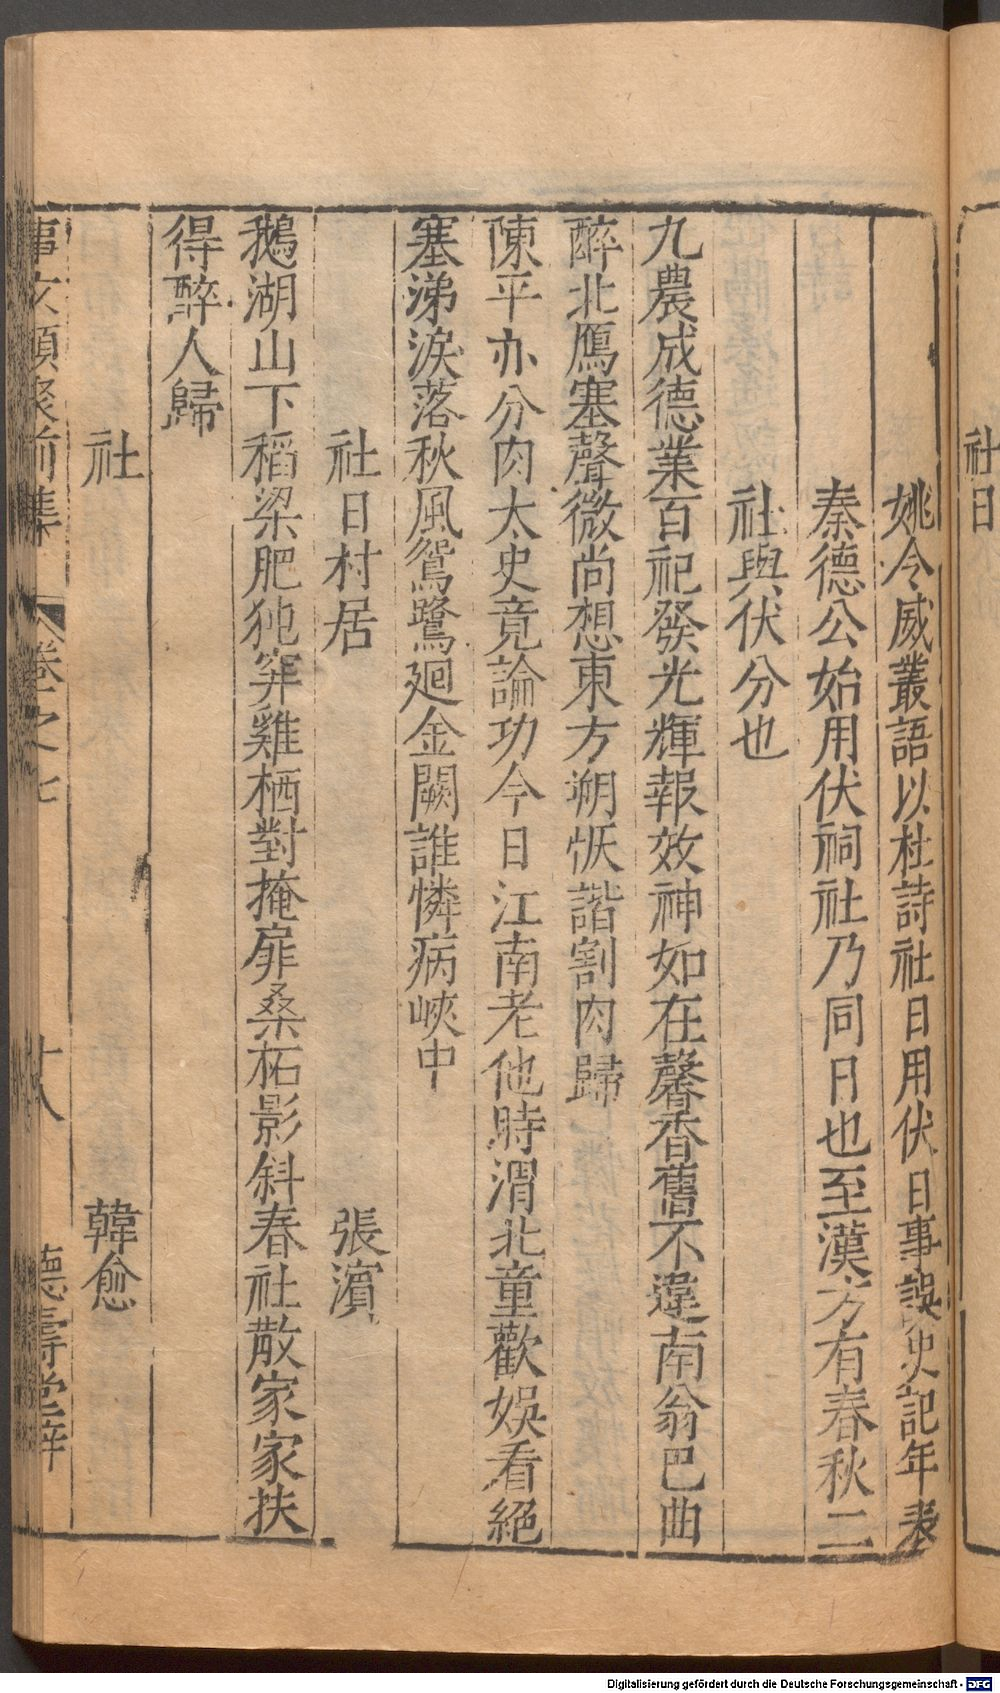 社日
姚令威叢語以杜詩社日用伏日事誤史記年表
秦德公始用伏祠社乃同日也至漢方有春秋二
社與伏分也
九農成德業百祀發光輝報效神如在馨香舊不違南翁巴曲
醉北鴈塞聲微尚想東方朔恢諧割肉歸
陳平亦分肉太史竟論功今日江南老他時渭北童歡娛看絕
塞涕淚落秋風鴛鷺廻金闕誰憐病峽中
社日村居 張濱
鵝湖山下稻梁肥㹠穽雞栖對掩扉桑柘影斜春社散家家扶
得醉人歸
社 韓愈
事文類聚前集 卷之七 十八 德壽堂梓
Digitalisierung gefördert durch die Deutsche Forschungsgemeinschaft - DFG